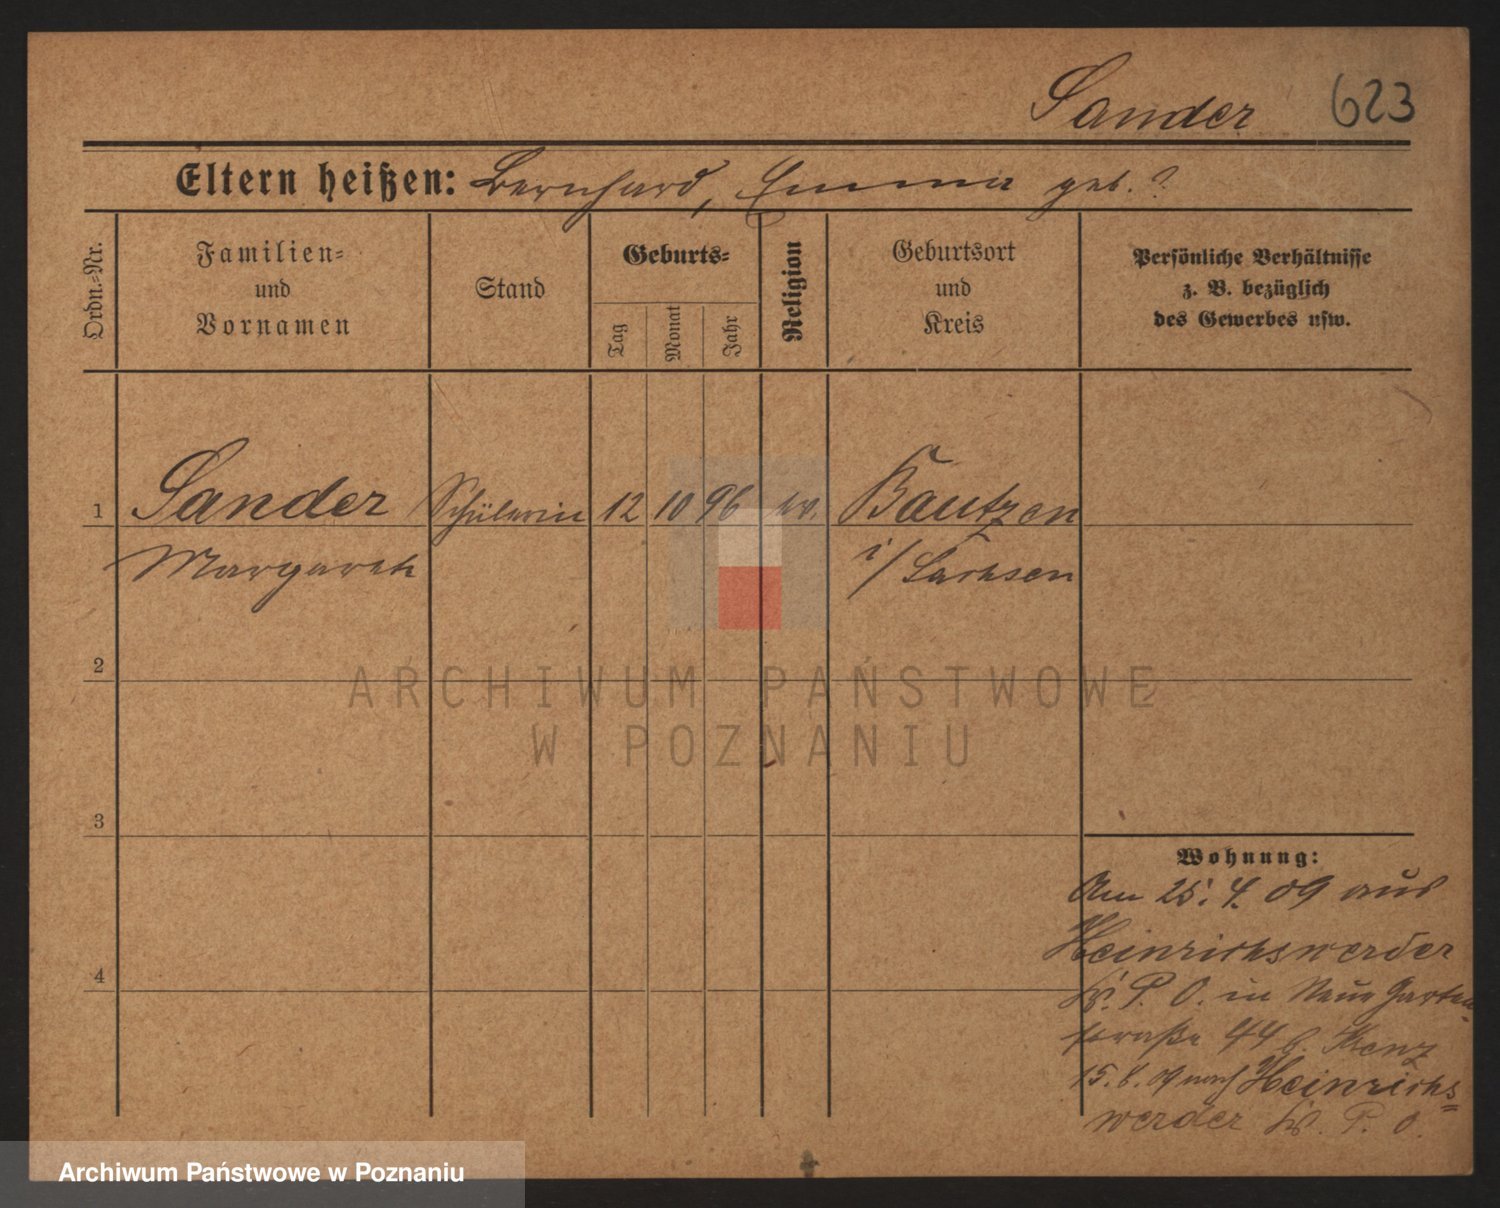 Sander 623
Eltern heißen: Bernhard, Emma geb. ?
Ordn.-Nr.
Familien-
und
Vornamen
Stand
Geburts-
Tag
Monat
Jahr
Religion
Geburtsort
und
Kreis
Persönliche Verhältnisse
z. B. bezüglich
des Gewerbes usw.
1 Sander Schülerin 12 10 96 ev. Bautzen
Margareth i/Sachsen
2
3
4
ARCHIWUM PAŃSTWOWE
W POZNANIU
Wohnung:
Am 25. 4. 09 aus
Heinrichswerder
P. O. in Neue Garten-
straße 44 b. Menz
15. 8. 09 nach Heinrichs=
werder P. O.
Archiwum Państwowe w Poznaniu